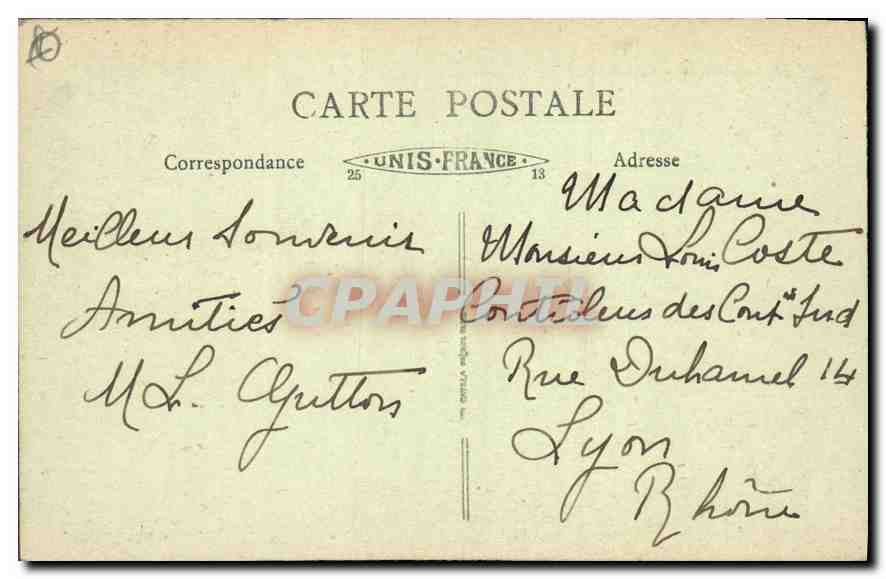 CARTE POSTALE
Correspondance
UNIS-FRANCE
25 13
Adresse
Meilleur Souvenir
Amitiés
M L. Guttor
Madame
Monsieur Louis Coste
Contrôleur des Cont. Ind
Rue Duhamel 14
Lyon
Rhône
CPAPHIL